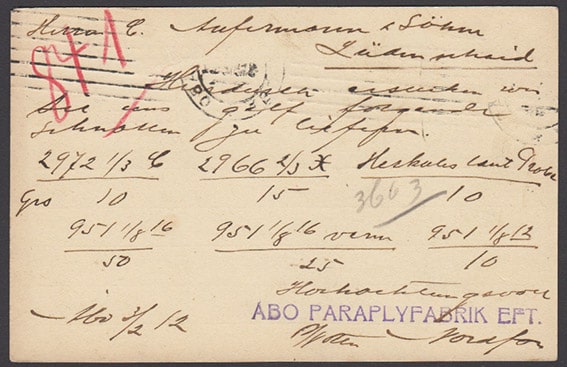 Herrn C. Aufermann & Söhne
Lüdenscheid
87 A
ÅBO
Hierdurch ersuchen wir
Sie uns gefl. folgende
Schnallen zu liefern
2972 1/3 C 2966 2/3 X Herkules laut Probe
Gro 10 15 10
3663
951 1/8 16 951 1/8 16 vern 951 1/8 12
50 25 10
Hochachtungsvoll
Åbo 3/2 12
ÅBO PARAPLYFABRIK EFT.